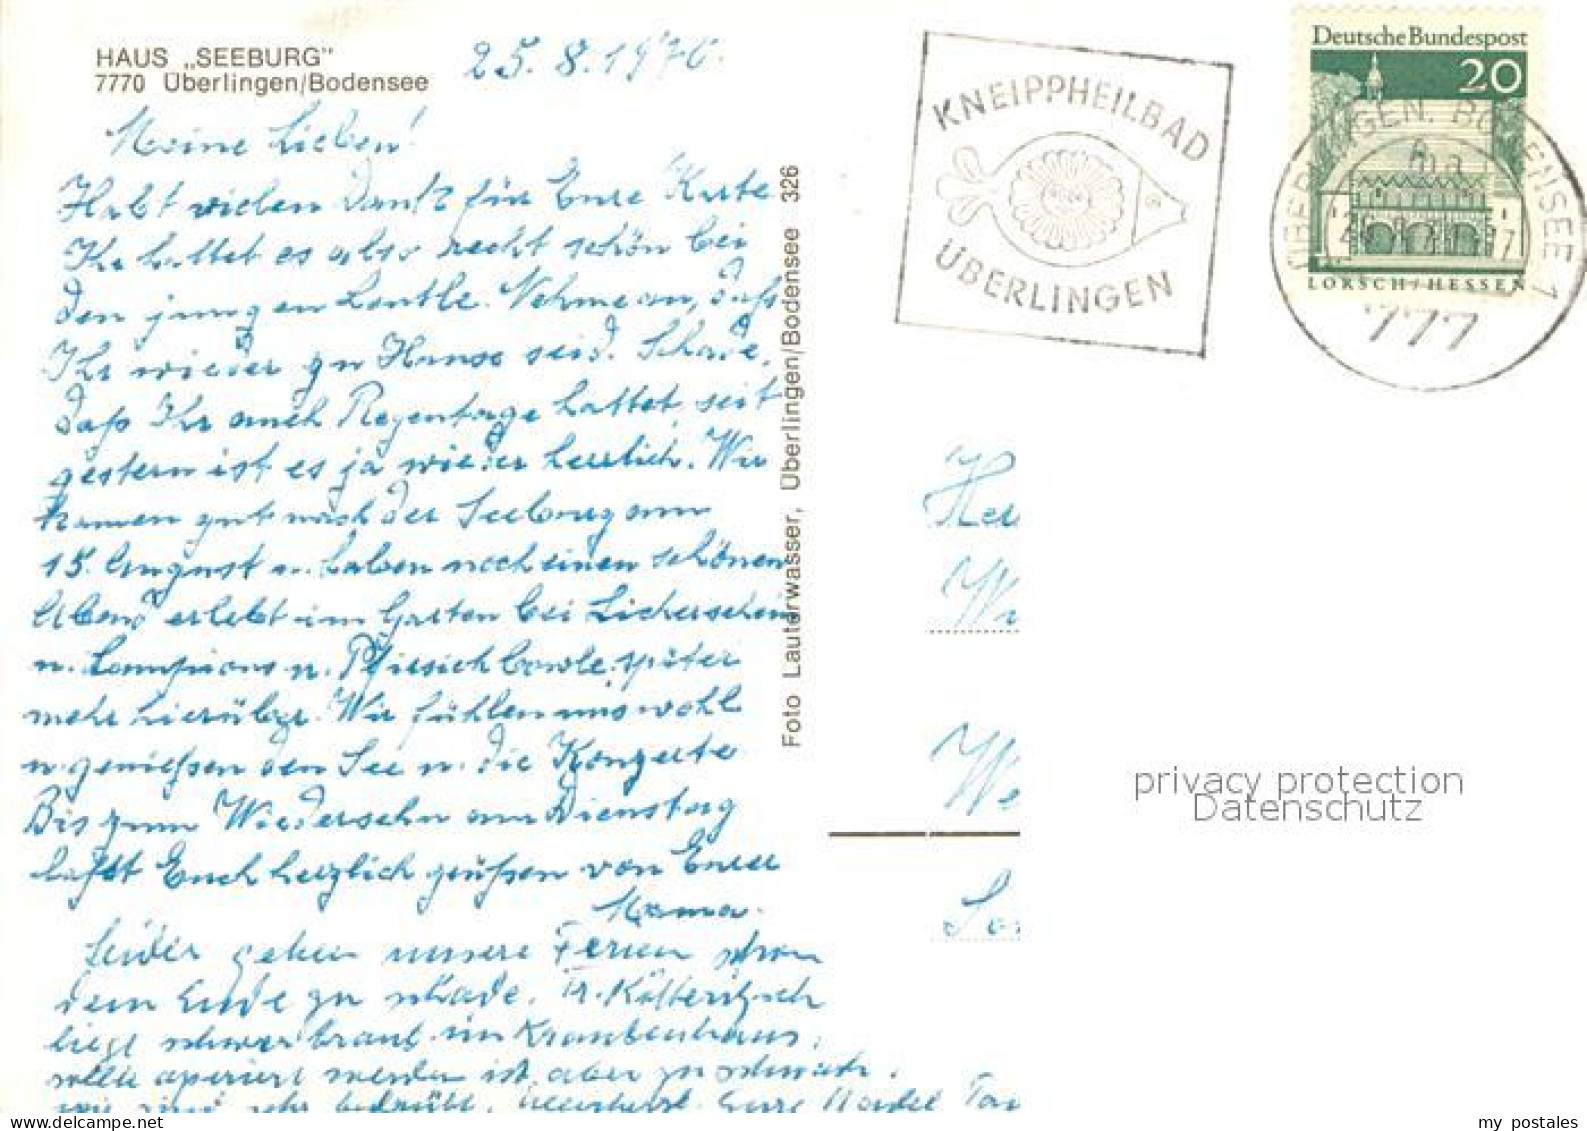 HAUS „SEEBURG"
7770 Überlingen/Bodensee
25. 8. 1970.
Meine Lieben!
Habt vielen Dank für Eure Karte
Ihr hattet es also recht schön bei
den jungen Leutle. Nehme an, daß
Ihr wieder zu Hause seid. Schade,
daß Ihr auch Regentage hattet, seit
gestern ist es ja wieder herrlich. Wir
kamen gut nach der Seeburg am
15. August u. haben noch einen schönen
Abend erlebt im Garten bei Lichterschein
u. Lampions u. Pfirsichbowle, später
mehr hierüber. Wir fühlen uns wohl
u. genießen den See u. die Konzerte
Bis zum Wiedersehn am Dienstag
laßt Euch herzlich grüßen von Eurer
Mama.
Leider gehen unsere Ferien schon
dem Ende zu schade. Fr.
liegt schwer krank im Krankenhaus,
sollte operiert werden ist aber zu schwach.
wir sind sehr bedrückt. Eure
Foto Lauterwasser, Überlingen/Bodensee 326
KNEIPPHEILBAD
ÜBERLINGEN
Deutsche Bundespost
20
LORSCH/HESSEN
ÜBERLINGEN, BODENSEE 1
777
Her
We
privacy protection
Datenschutz
my postales